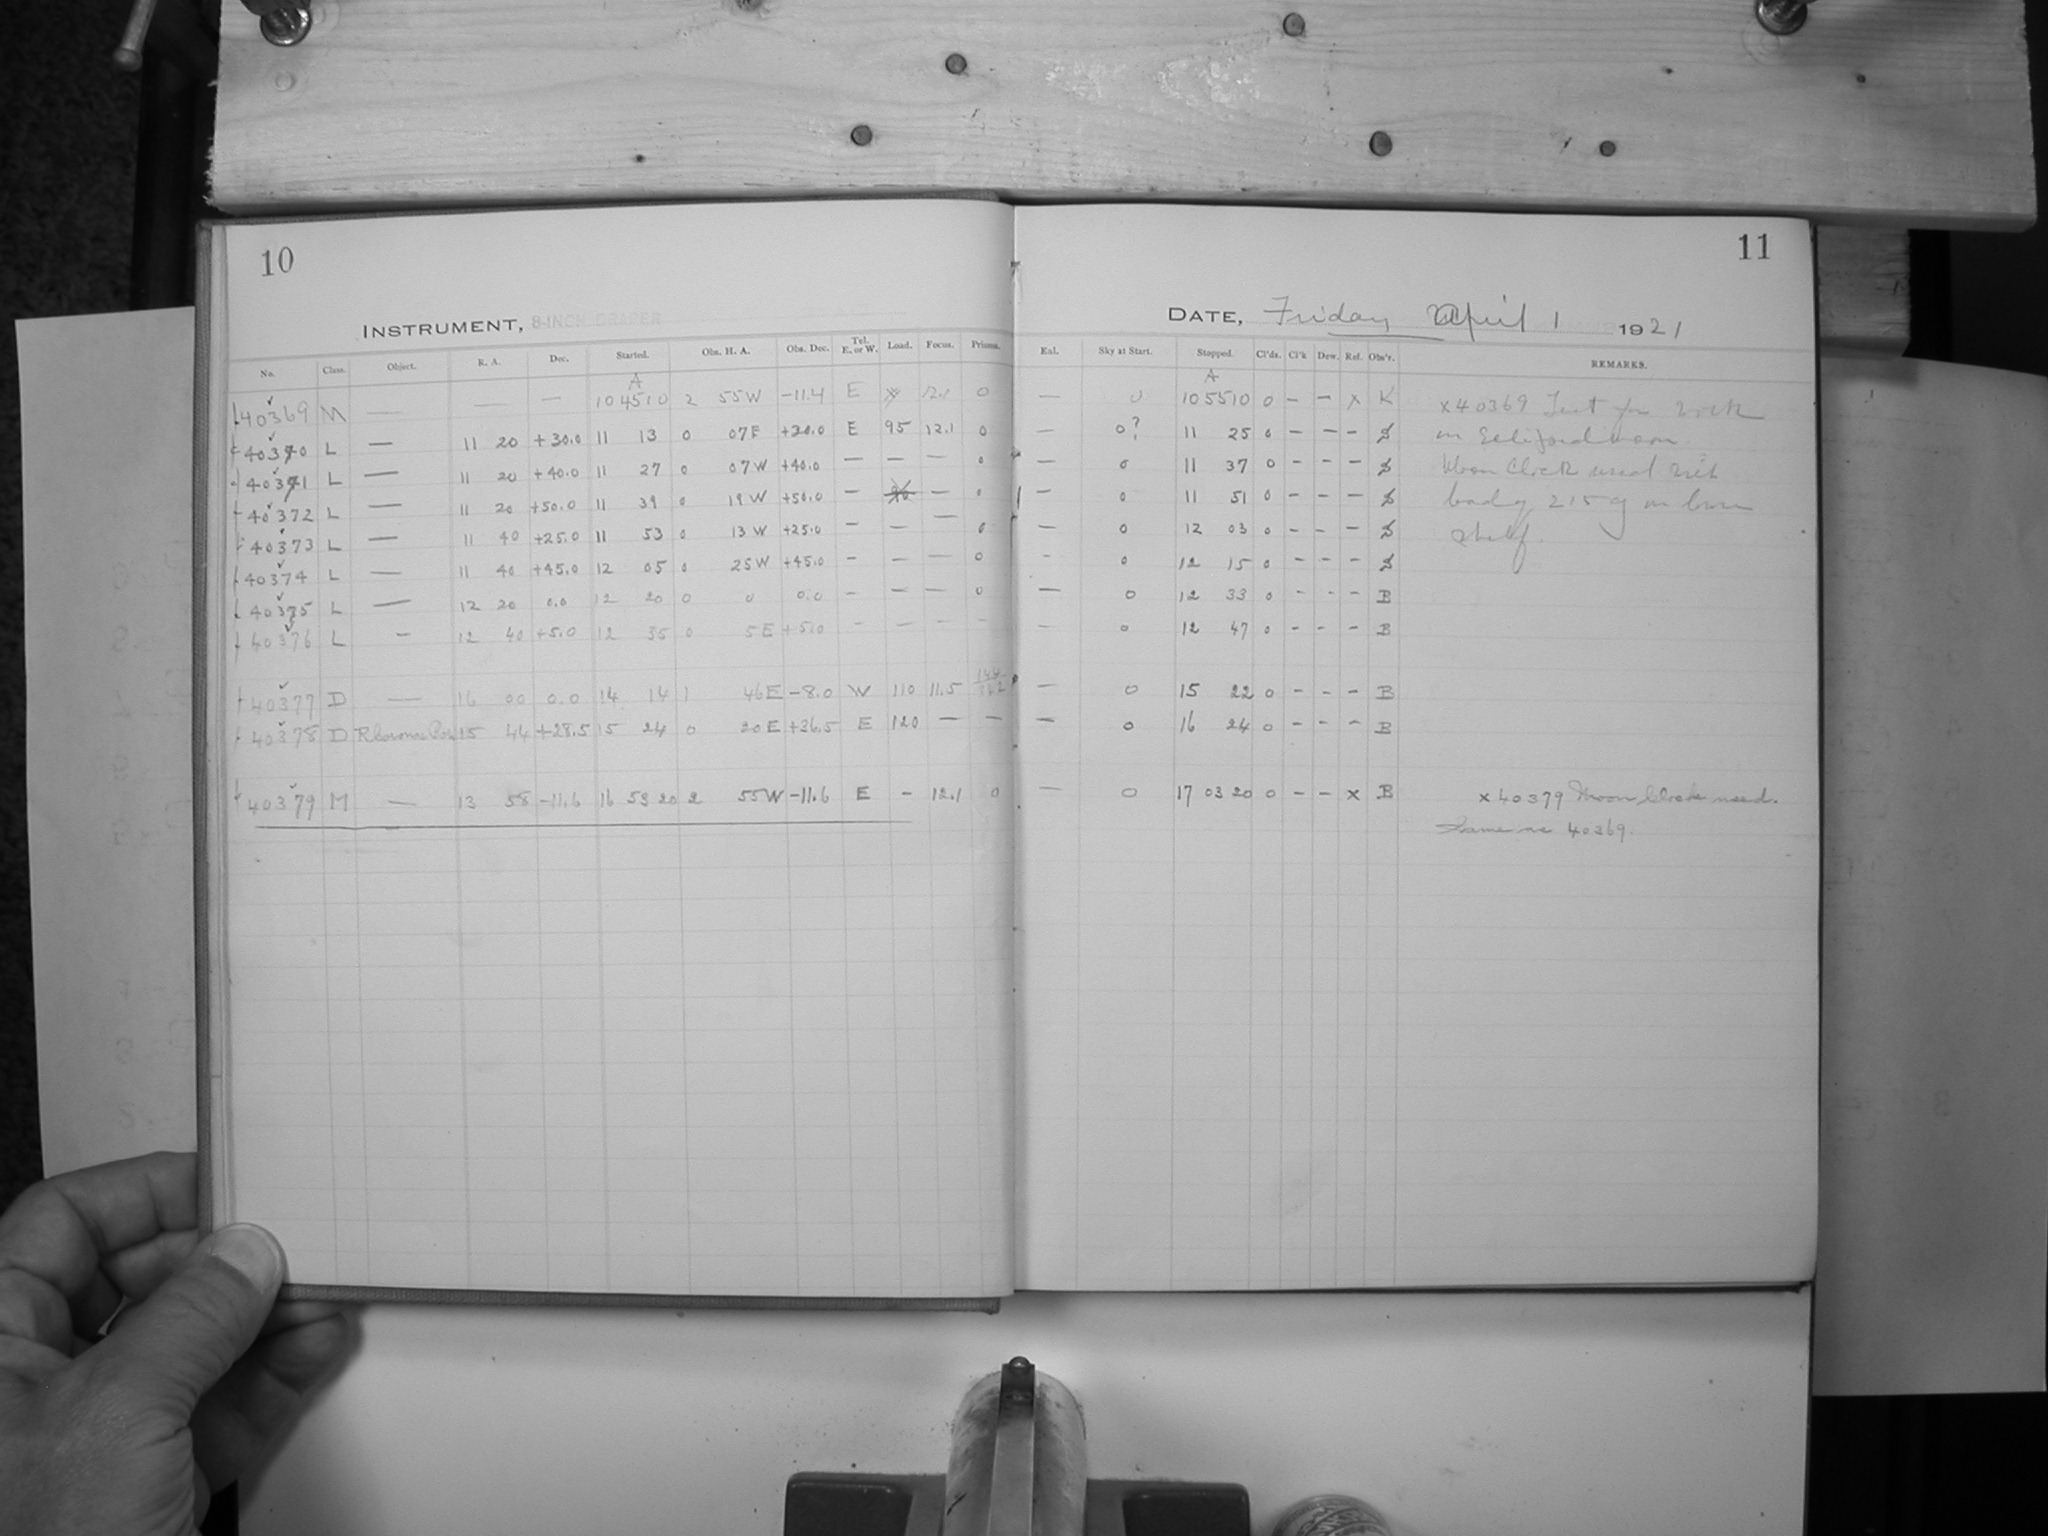 10
INSTRUMENT, 8-INCH DRAPER
No. Class. Object. R. A. Dec. Started. Obs. H. A. Obs. Dec. Tel. E. or W. Load. Focus. Prisms.
A
40369 M — — — 10 45 10 2 55 W -11.4 E 12.1 0
40370 L — 11 20 +30.0 11 13 0 07 E +30.0 E 95 12.1 0
40371 L — 11 20 +40.0 11 27 0 07 W +40.0 — — — 0
40372 L — 11 20 +50.0 11 39 0 19 W +50.0 — — 0
40373 L — 11 40 +25.0 11 53 0 13 W +25.0 — — — 0
40374 L — 11 40 +45.0 12 05 0 25 W +45.0 — — — 0
40375 L — 12 20 0.0 12 20 0 0 0.0 — — — 0
40376 L — 12 40 +5.0 12 35 0 5 E +5.0 — — — —
40377 D — 16 00 0.0 14 14 1 46 E -8.0 W 110 11.5
40378 D R Coronae 15 44 +28.5 15 24 0 20 E +36.5 E 120 — —
40379 M — 13 58 -11.6 16 53 20 2 55 W -11.6 E - 12.1 0
11
DATE, Friday April 1 1921
Enl. Sky at Start. Stopped. Cl'ds. Cl'k Dew. Ref. Obs'r. REMARKS.
A
— 0 10 55 10 0 – – x K x40369 Test for
— 0? 11 25 0 – – – S in
— 0 11 37 0 – – – S Moon Clock used with
— 0 11 51 0 – – – S load of 215 g on
— 0 12 03 0 – – – S shelf.
- 0 12 15 0 – – – S
— 0 12 33 0 – – – B
— 0 12 47 0 – – – B
— 0 15 22 0 – – – B
— 0 16 24 0 – – – B
— 0 17 03 20 0 – – x B x40379 Moon Clock used.
Same as 40369.